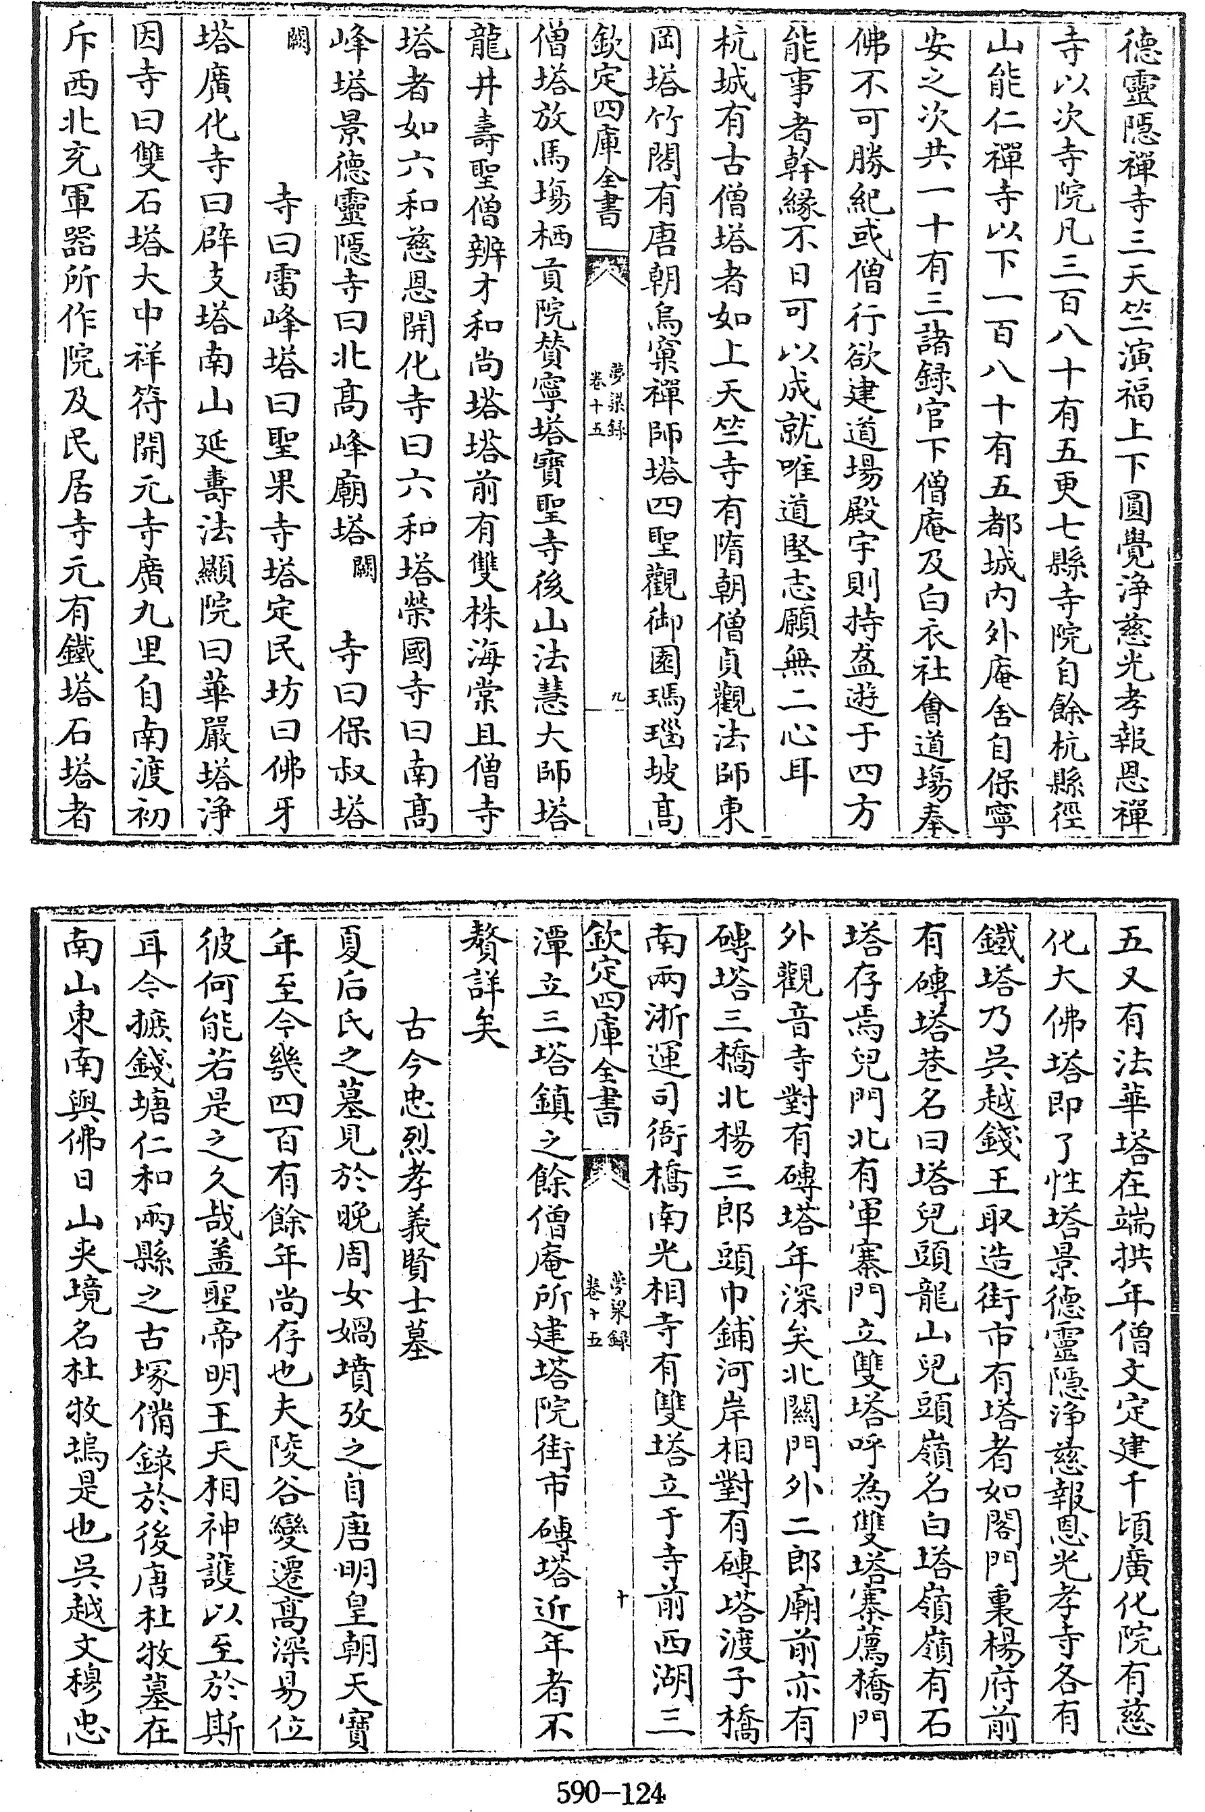 德靈隱禪寺三天竺演福上下圓覺淨慈光孝報恩禪
寺以次寺院凡三百八十有五更七縣寺院自餘杭縣徑
山能仁禪寺以下一百八十有五都城內外庵舍自保寧
安之次共一十有三諸錄官下僧庵及白衣社會道場奉
佛不可勝紀或僧行欲建道場殿宇則持盆遊于四方
能事者幹緣不日可以成就唯道堅志願無二心耳
杭城有古僧塔者如上天竺寺有隋朝僧貞觀法師東
岡塔竹閣有唐朝鳥窠禪師塔四聖觀御園瑪瑙坡高
欽定四庫全書
夢粱錄
卷十五
九
僧塔放馬塲栖貢院贊寧塔寶聖寺後山法慧大師塔
龍井壽聖僧辨才和尚塔塔前有雙株海棠且僧寺
塔者如六和慈恩開化寺曰六和塔榮國寺曰南高
峰塔景德靈隱寺曰北高峰廟塔 闕 寺曰保叔塔
闕 寺曰雷峰塔曰聖果寺塔定民坊曰佛牙
塔廣化寺曰辟支塔南山延壽法顯院曰華嚴塔淨
因寺曰雙石塔大中祥符開元寺廣九里自南渡初
斥西北充軍器所作院及民居寺元有鐵塔石塔者
五又有法華塔在端拱年僧文定建千頃廣化院有慈
化大佛塔即了性塔景德靈隱淨慈報恩光孝寺各有
鐵塔乃吳越錢王取造街市有塔者如閣門裏楊府前
有磚塔巷名曰塔兒頭龍山兒頭嶺名白塔嶺嶺有石
塔存焉兒門北有軍寨門立雙塔呼為雙塔寨薦橋門
外觀音寺對有磚塔年深矣北關門外二郎廟前亦有
磚塔三橋北楊三郎頭巾鋪河岸相對有磚塔渡子橋
南兩浙運司衙橋南光相寺有雙塔立于寺前西湖三
欽定四庫全書
夢粱錄
卷十五
十
潭立三塔鎮之餘僧庵所建塔院街市磚塔近年者不
贅詳矣
古今忠烈孝義賢士墓
夏后氏之墓見於晚周女媧墳攷之自唐明皇朝天寶
年至今幾四百有餘年尚存也夫陵谷變遷高深易位
彼何能若是之久哉蓋聖帝明王天相神護以至於斯
耳今摭錢塘仁和兩縣之古塚備錄於後唐杜牧墓在
南山東南與佛日山夾境名杜牧塢是也吳越文穆忠
590-124